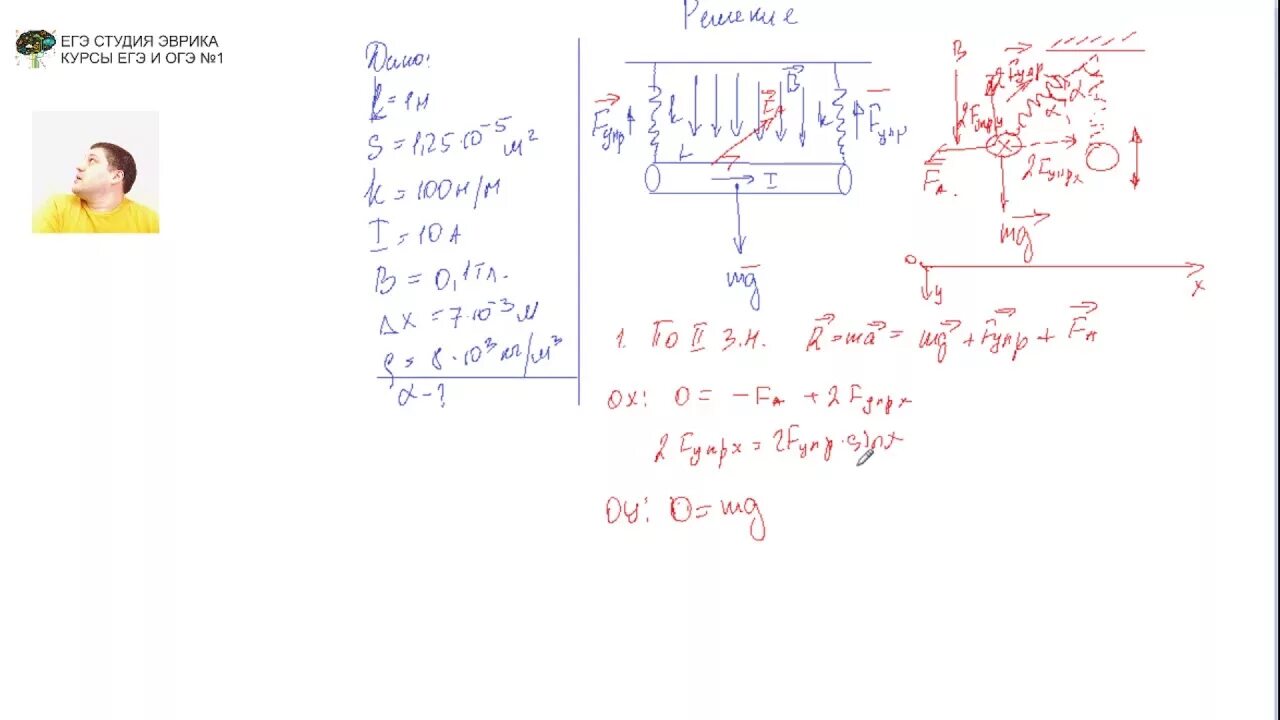 ЕГЭ СТУДИЯ ЭВРИКА
КУРСЫ ЕГЭ И ОГЭ №1
Решение
Дано:
ℓ = 1м
S = 1,25·10⁻⁵ м²
k = 100 Н/м
I = 10 А
B = 0,1 Тл.
Δx = 7·10⁻³ м
ρ = 8·10³ кг/м³
α - ?
Fупр k B k Fупр
FA
L
I
mg
B 2Fупр
2Fупр y
α α
FA. 2Fупр x
mg
0 x
y
1. По II З.Н. R = ma = mg + Fупр + FA
OX: 0 = - FA + 2Fупр x
2Fупр x = 2Fупр · sin α
OY: 0 = mg